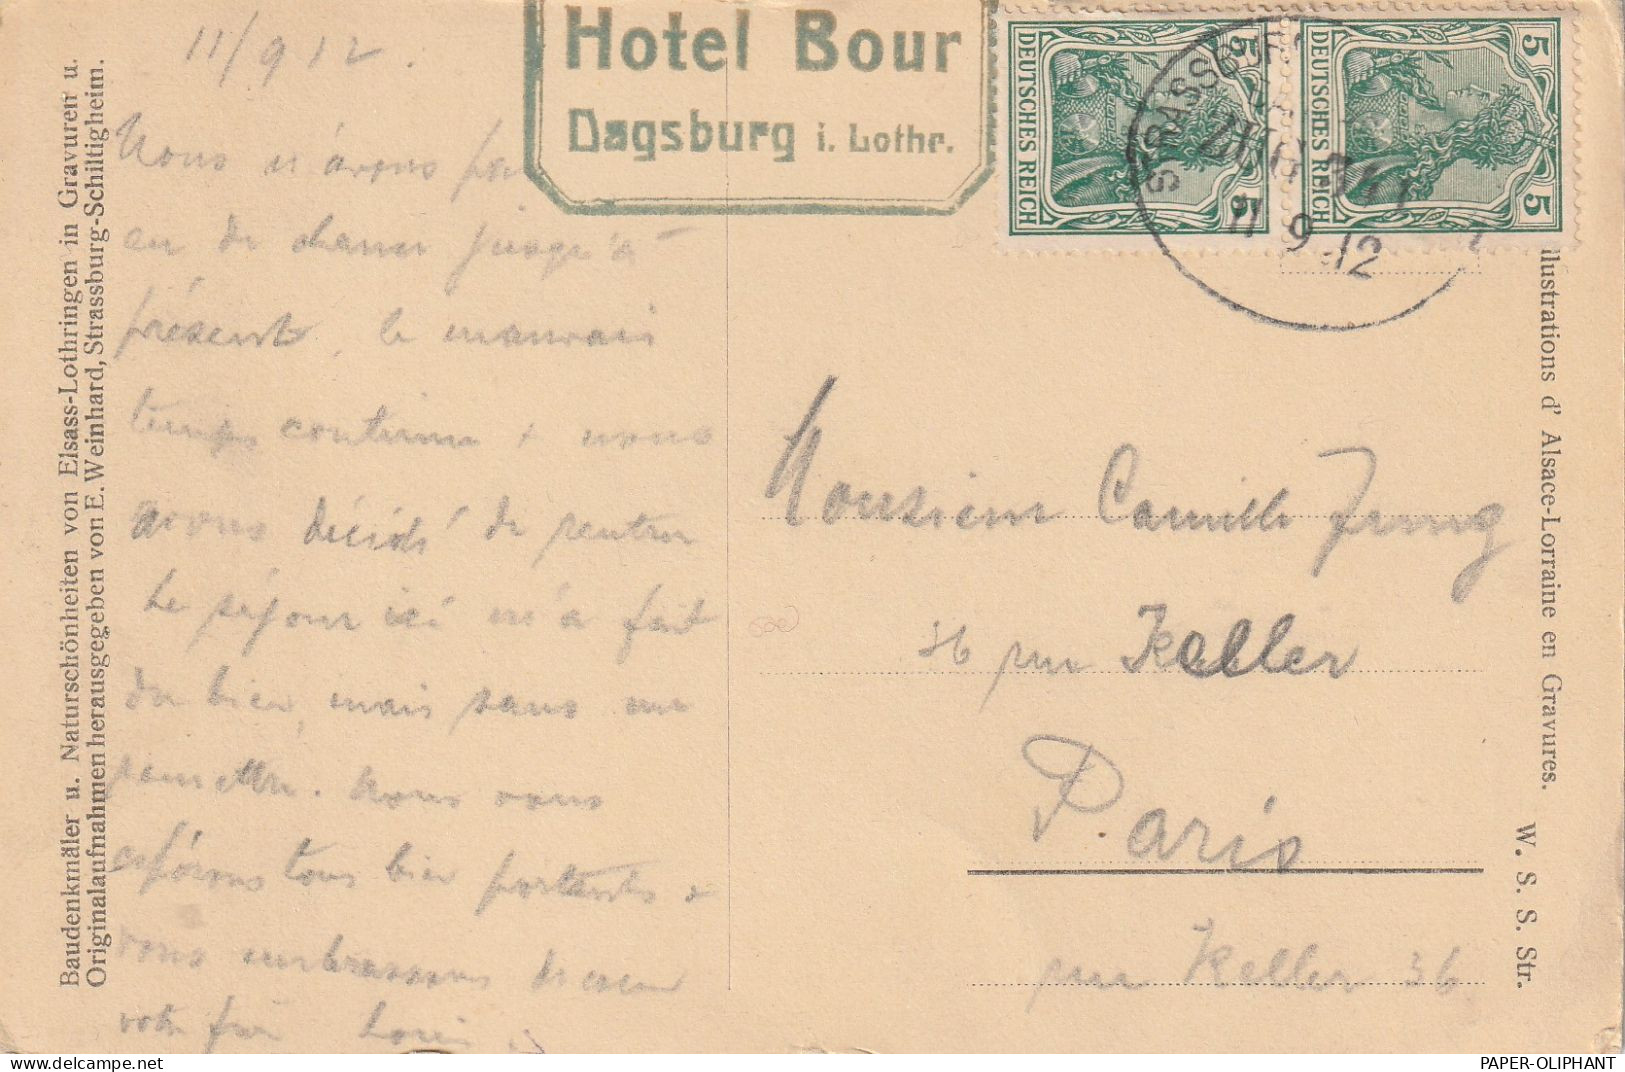 11/9 12.
Hotel Bour
Dagsburg i. Lothr.
Nous n'avons pas
eu de chance jusqu'à
présent, le mauvais
temps continue + nous
avons décidé de rentrer
Le séjour ici m'a fait
du bien, mais sans me
remettre. Nous vous
espérons tous bien portants +
vous embrassons de coeur
votre Louis
Baudenkmäler u. Naturschönheiten von Elsass-Lothringen in Gravuren u.
Originalaufnahmen herausgegeben von E. Weinhard, Strassburg-Schiltigheim.
5 5
DEUTSCHES REICH
5 5
DEUTSCHES REICH
STRASSBURG
ZUG 341
11 9 12
Monsieur Camille Jung
36 rue Keller
Paris
rue Keller 36.
Illustrations d' Alsace-Lorraine en Gravures. W. S. S. Str.
PAPER-OLIPHANT